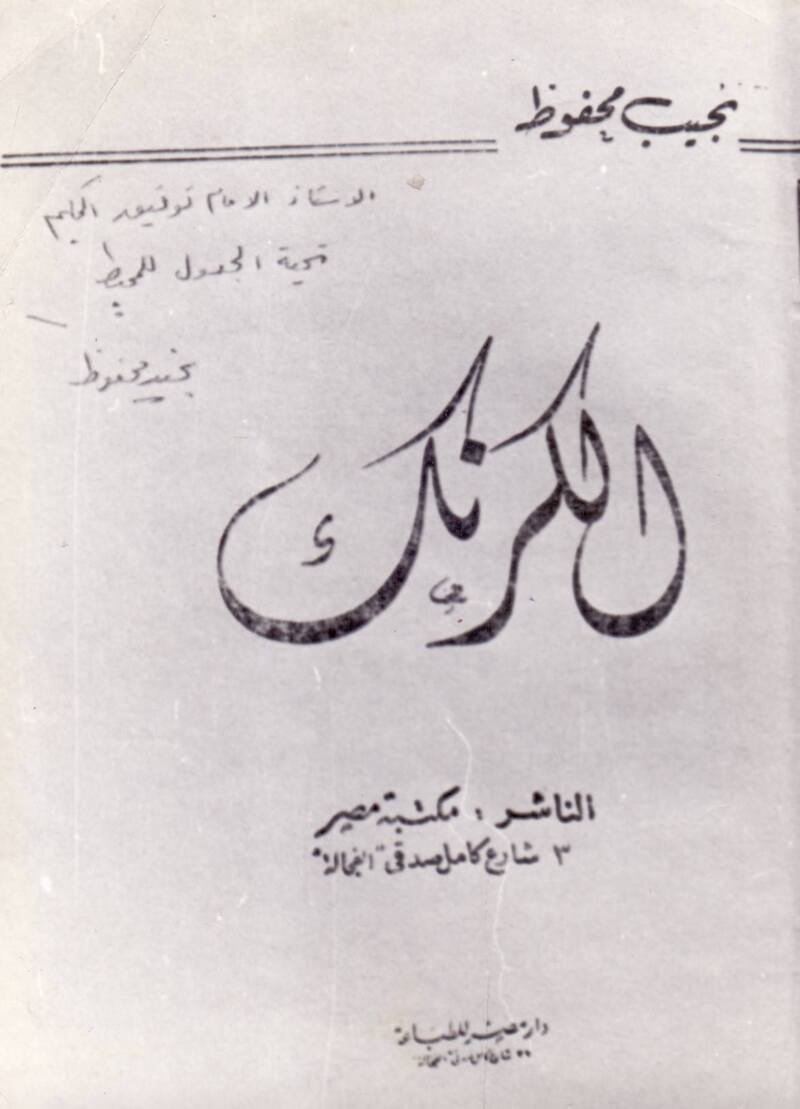 نجيب محفوظ
الاستاذ الامام توفيق الحكيم
تحية الجدول للمحيط
نجيب محفوظ
الكرنك
الناشر : مكتبة مصر
٣ شارع كامل صدقى "الفجالة"
دار مصر للطباعة